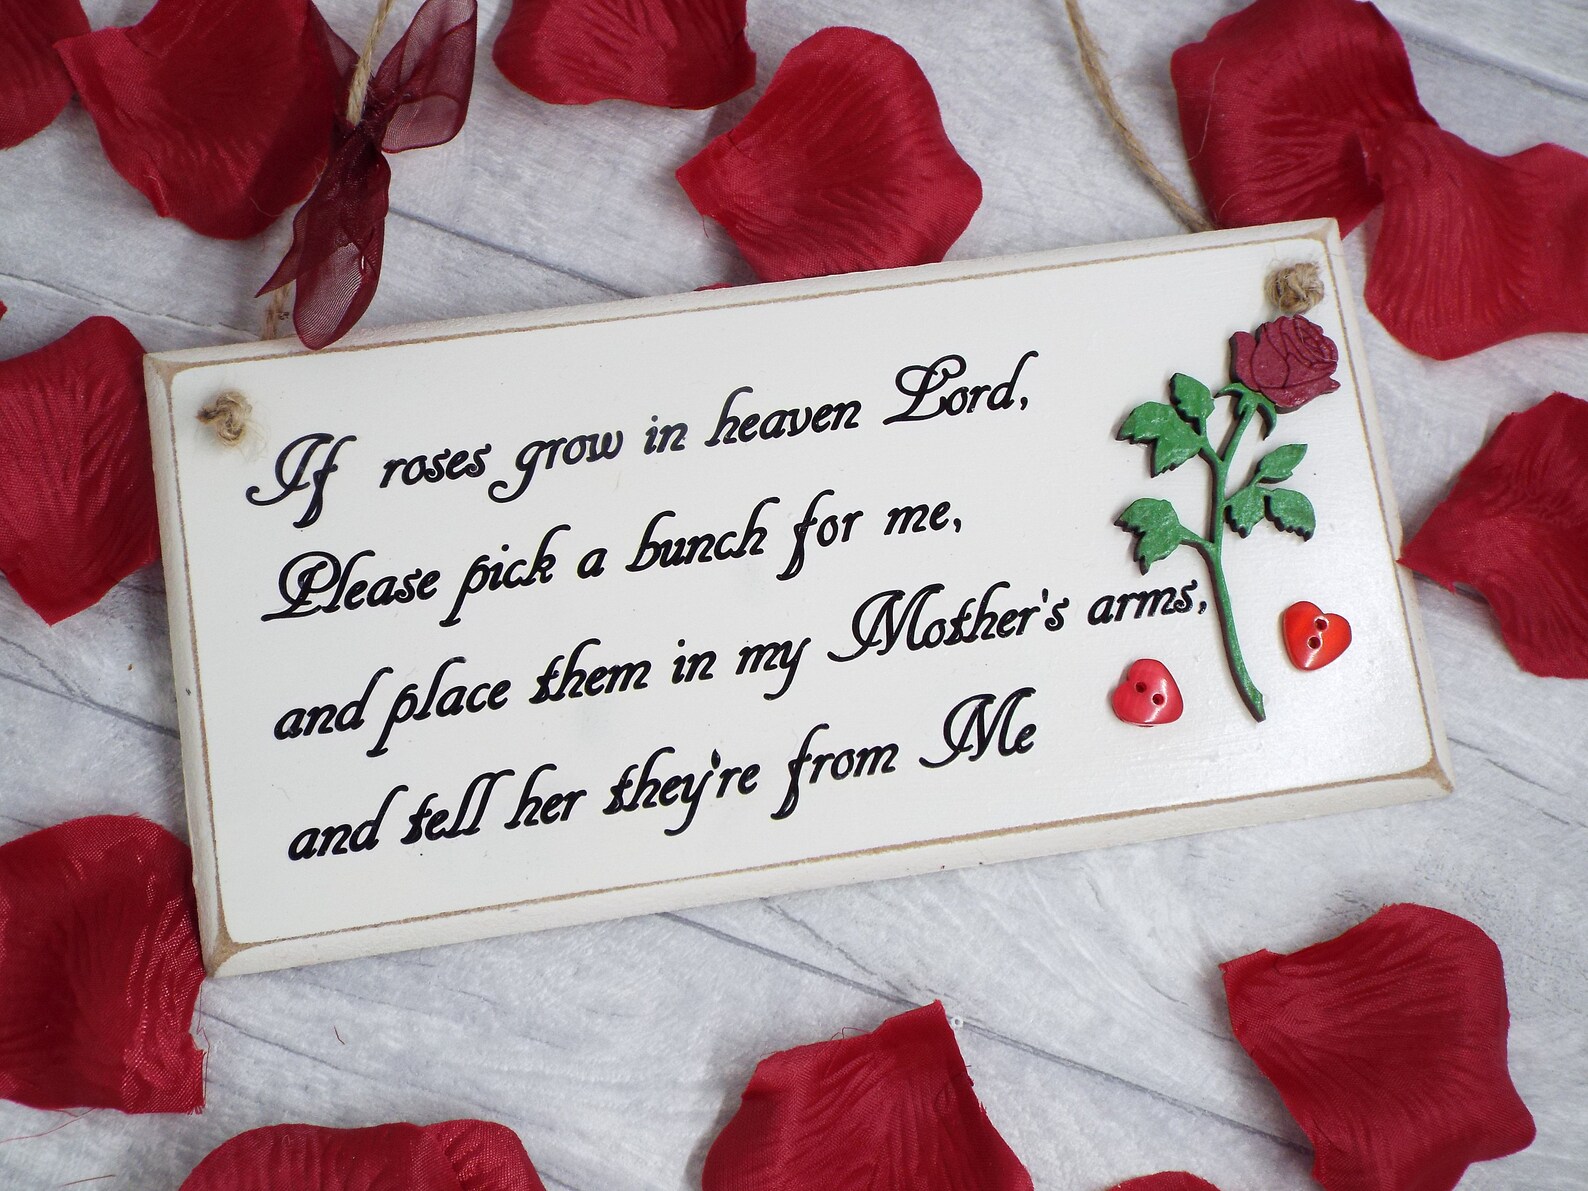 If roses grow in heaven Lord,
Please pick a bunch for me,
and place them in my Mother's arms,
and tell her they're from Me